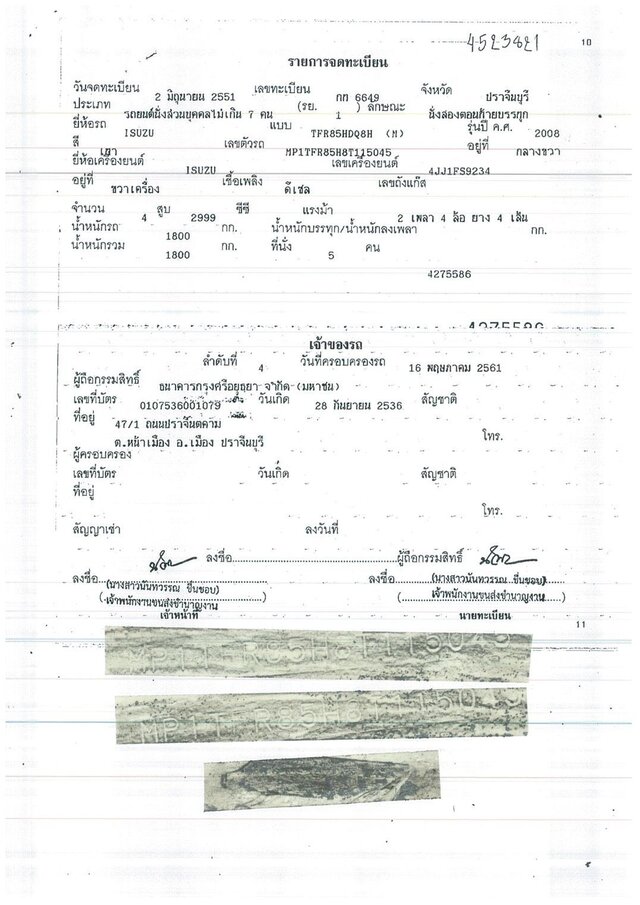 4523821
10
รายการจดทะเบียน
วันจดทะเบียน 2 มิถุนายน 2551 เลขทะเบียน กก 6649 จังหวัด ปราจีนบุรี
ประเภท รถยนต์นั่งส่วนบุคคลไม่เกิน 7 คน (รย. 1 ) ลักษณะ นั่งสองตอนท้ายบรรทุก
ยี่ห้อรถ ISUZU แบบ TFR85HDQ8H (M) รุ่นปี ค.ศ. 2008
สี เทา เลขตัวรถ MP1TFR85H8T115045 อยู่ที่ กลางขวา
ยี่ห้อเครื่องยนต์ ISUZU เลขเครื่องยนต์ 4JJ1FS9234
อยู่ที่ ขวาเครื่อง เชื้อเพลิง ดีเซล เลขถังแก๊ส
จำนวน 4 สูบ 2999 ซีซี แรงม้า 2 เพลา 4 ล้อ ยาง 4 เส้น
น้ำหนักรถ 1800 กก. น้ำหนักบรรทุก/น้ำหนักลงเพลา กก.
น้ำหนักรวม 1800 กก. ที่นั่ง 5 คน
4275586
4275586
เจ้าของรถ
ลำดับที่ 4 วันที่ครอบครองรถ 16 พฤษภาคม 2561
ผู้ถือกรรมสิทธิ์ ธนาคารกรุงศรีอยุธยา จำกัด (มหาชน)
เลขที่บัตร 0107536001079 วันเกิด 28 กันยายน 2536 สัญชาติ
ที่อยู่ 47/1 ถนนปราจีนตคาม
ต.หน้าเมือง อ.เมือง ปราจีนบุรี โทร.
ผู้ครอบครอง
เลขที่บัตร วันเกิด สัญชาติ
ที่อยู่
โทร.
สัญญาเช่า ลงวันที่
ลงชื่อ ผู้ถือกรรมสิทธิ์
ลงชื่อ (นางสาวนันทวรรณ ชื่นชอบ) ลงชื่อ (นางสาวนันทวรรณ ชื่นชอบ)
(เจ้าพนักงานขนส่งชำนาญงาน) (เจ้าพนักงานขนส่งชำนาญงาน)
เจ้าหน้าที่ นายทะเบียน
11